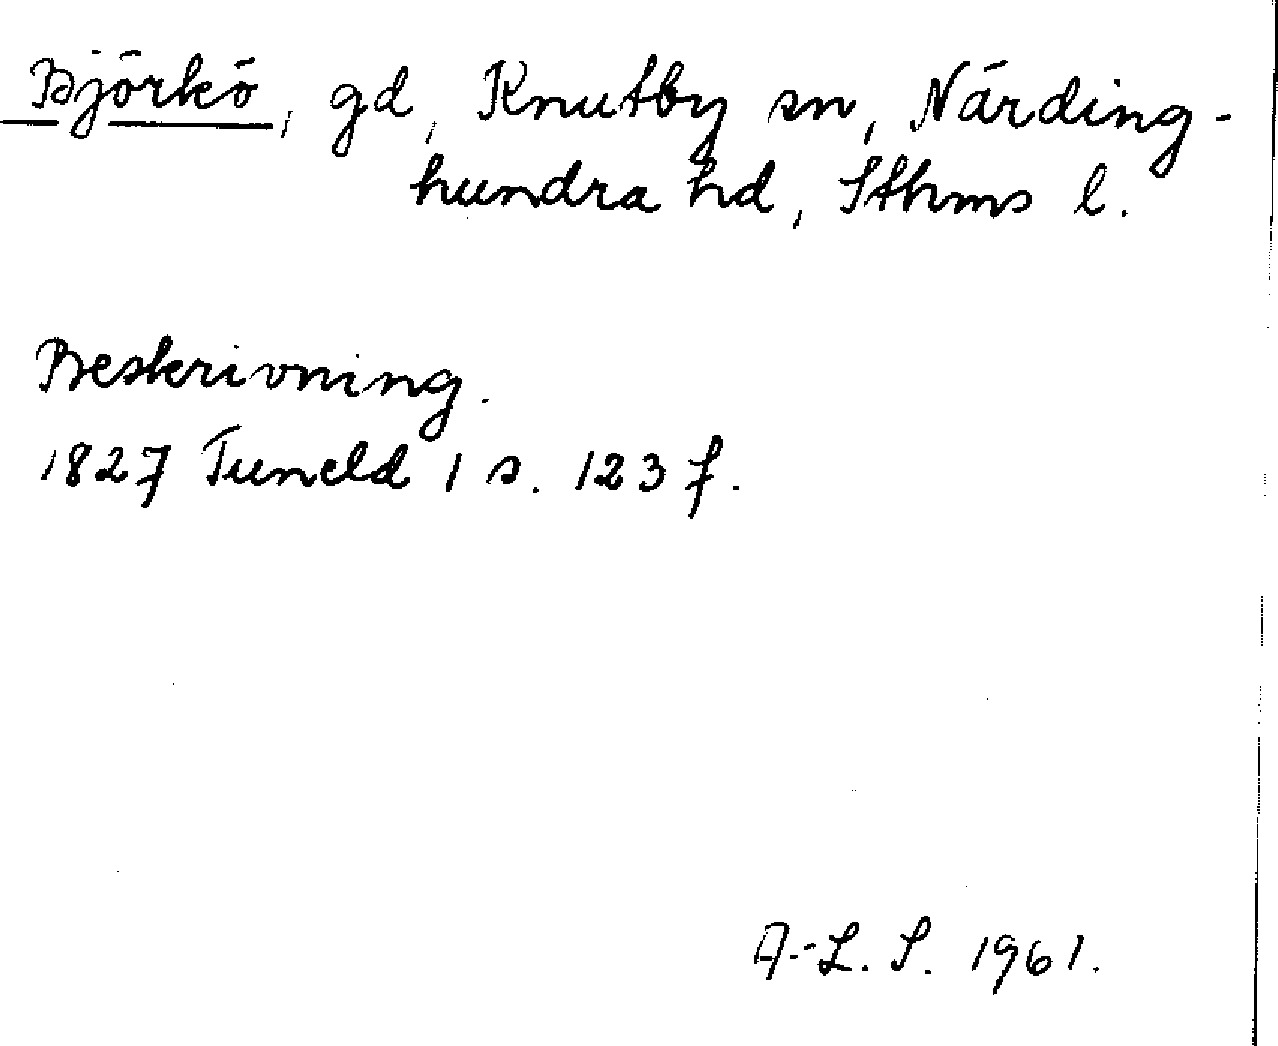 Björkö, gd, Knutby sn, Närding-
hundra hd, Sthms l.
Beskrivning.
1827 Tuneld 1 s. 123 f.
A.-L. S. 1961.